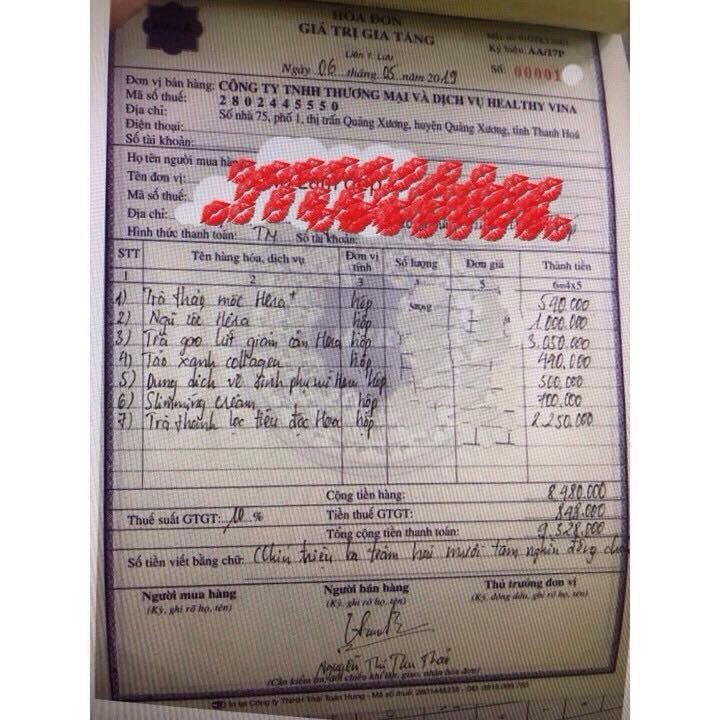 HÓA ĐƠN
GIÁ TRỊ GIA TĂNG
Liên 1: Lưu
Ký hiệu: AA/17P
Ngày 06 tháng 05 năm 2019
Số: 00001
Đơn vị bán hàng: CÔNG TY TNHH THƯƠNG MẠI VÀ DỊCH VỤ HEALTHY VINA
Mã số thuế: 2802445550
Địa chỉ: Số nhà 75, phố 1, thị trấn Quảng Xương, huyện Quảng Xương, tỉnh Thanh Hoá
Điện thoại:
Số tài khoản:
Họ tên người mua hàng
Tên đơn vị:
Mã số thuế:
Địa chỉ:
Hình thức thanh toán: TM Số tài khoản:
STT Tên hàng hóa, dịch vụ Đơn vị tính Số lượng Đơn giá Thành tiền
1 2 3 5 6=4x5
1) Trà thảo mộc Hera+ hộp 590.000
2) Ngũ cốc Hera hộp 1.000.000
3) Trà gạo lứt giảm cân Hera hộp 3.050.000
4) Tảo xanh collagen hộp 490.000
5) Dung dịch vệ sinh phụ nữ Hera hộp 500.000
6) Slimming cream hộp 700.000
7) Trà thanh lọc tiêu độc Hera hộp 2.250.000
Cộng tiền hàng: 8.480.000
Thuế suất GTGT: 10 % Tiền thuế GTGT: 848.000
Tổng cộng tiền thanh toán: 9.328.000
Số tiền viết bằng chữ: (Chín triệu ba trăm hai mươi tám nghìn đồng
Người mua hàng Người bán hàng Thủ trưởng đơn vị
(Ký, ghi rõ họ, tên) (Ký, ghi rõ họ, tên) (Ký, đóng dấu, ghi rõ họ, tên)
Nguyễn Thị Thu Thảo
(Cần kiểm tra, đối chiếu khi lập, giao, nhận hóa đơn)
In tại Công ty TNHH Thái Tuấn Hưng - Mã số thuế: